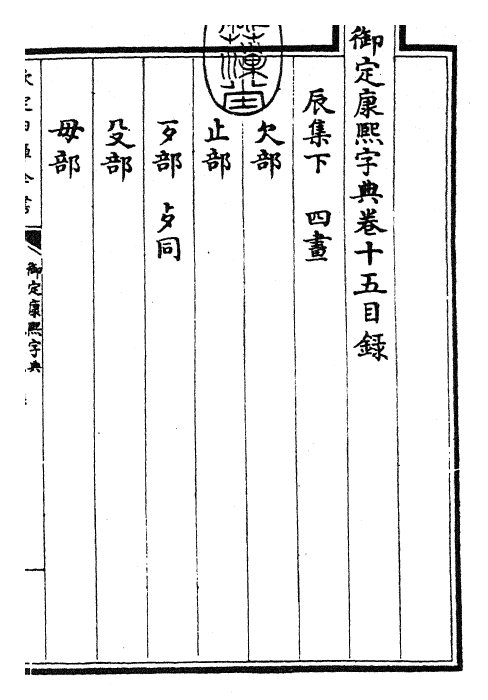 御定康熙字典卷十五目録
辰集下　四畫
欠部
止部
歹部　歺同
殳部
毋部
御定康熙字典